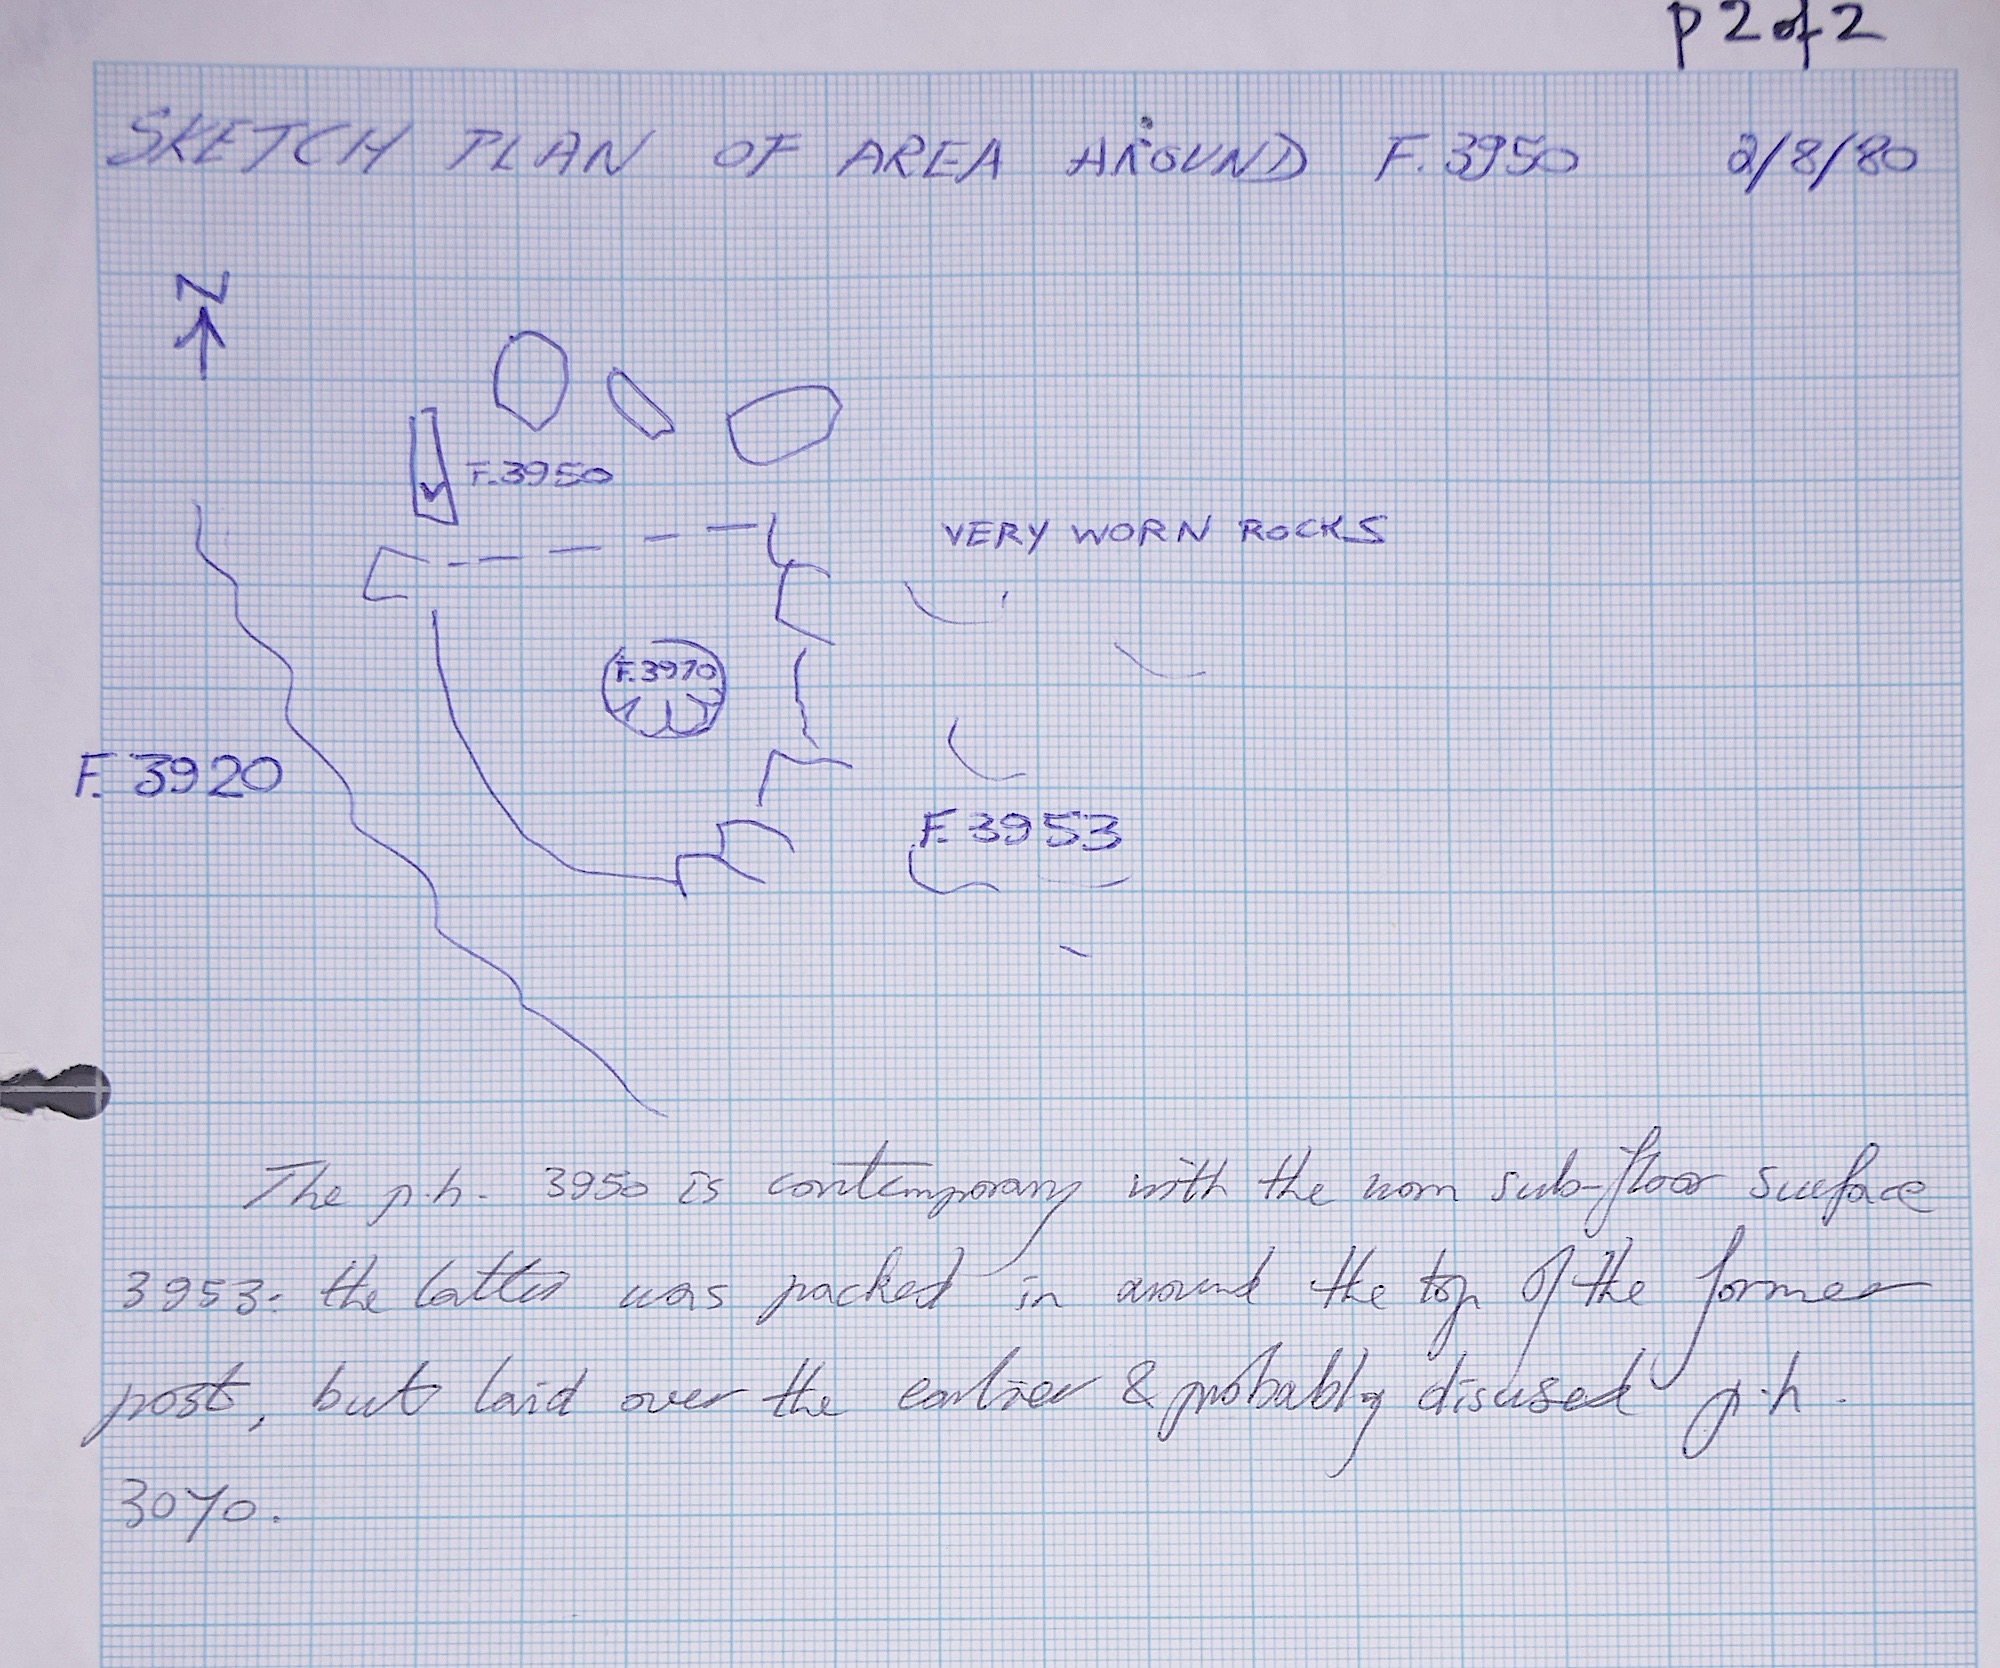 p 2 of 2
SKETCH PLAN OF AREA AROUND F. 3950 2/8/80
N
F.3950
VERY WORN ROCKS
F.3970
F. 3920
F. 3953
The p.h. 3950 is contemporary with the worn sub-floor surface
3953: the latter was packed in around the top of the former
post, but laid over the earlier & probably disused p.h.
3070.